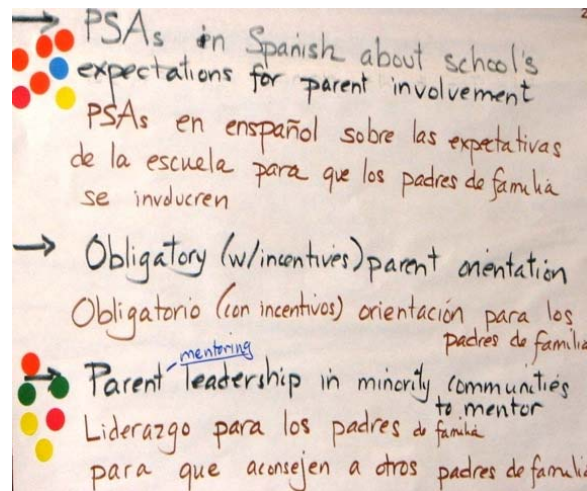 2
→ PSAs in Spanish about school's
expectations for parent involvement
PSAs en enspañol sobre las expetativas
de la escuela para que los padres de familia
se involucren
→ Obligatory (w/incentives) parent orientation
Obligatorio (con incentivos) orientación para los
padres de familia
mentoring
→ Parent leadership in minority communities
to mentor
Liderazgo para los padres de familia
para que aconsejen a otros padres de familia